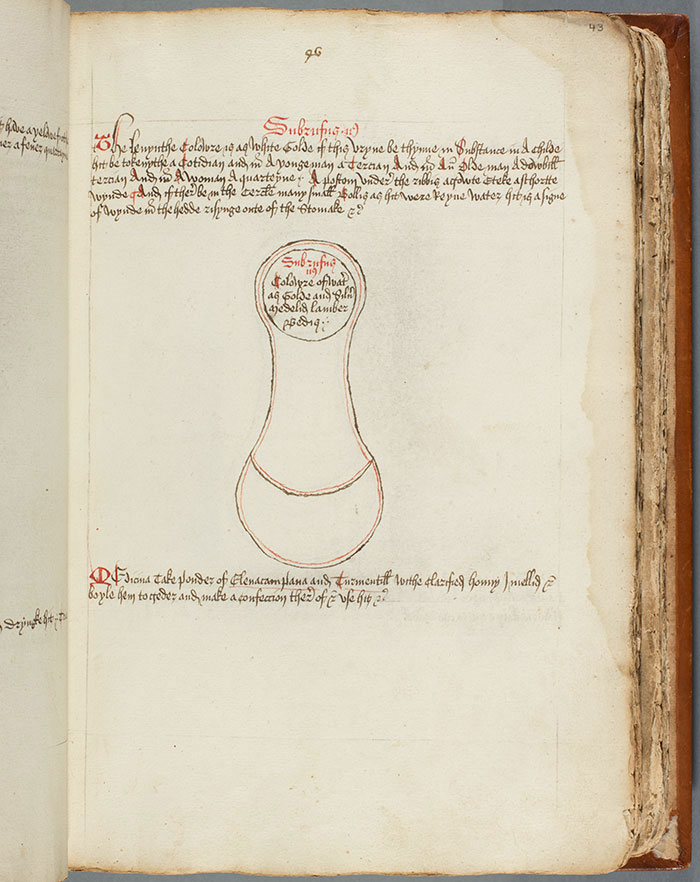 43
46
Subrufus
The Leuynthe Colowre is as White Golde if this vryne be thynne in Substance in A Childe
hit be tokenythe a Cotidian and in A yonge man a Tercian And in An Olde man A dowbill
tercian And in A Woman A quarteyne A postom vnder the ribbis acowte Eteke a shortte
wynde And if ther be in the Cercle many small Bollis as hit were Reyne Water hit is a signe
of wynde in the hedde risynge oute of the Stomake
Subrufus
Colowre of wat
as Golde and Silu
medelid lamber
pedis
Medicina Take Pouder of Elenacampana and Turmentill withe clarefied honny
boyle hem to geder and make a confection ther of vse hit
t have a yelow
ner a fever quarteyn
drynke hit